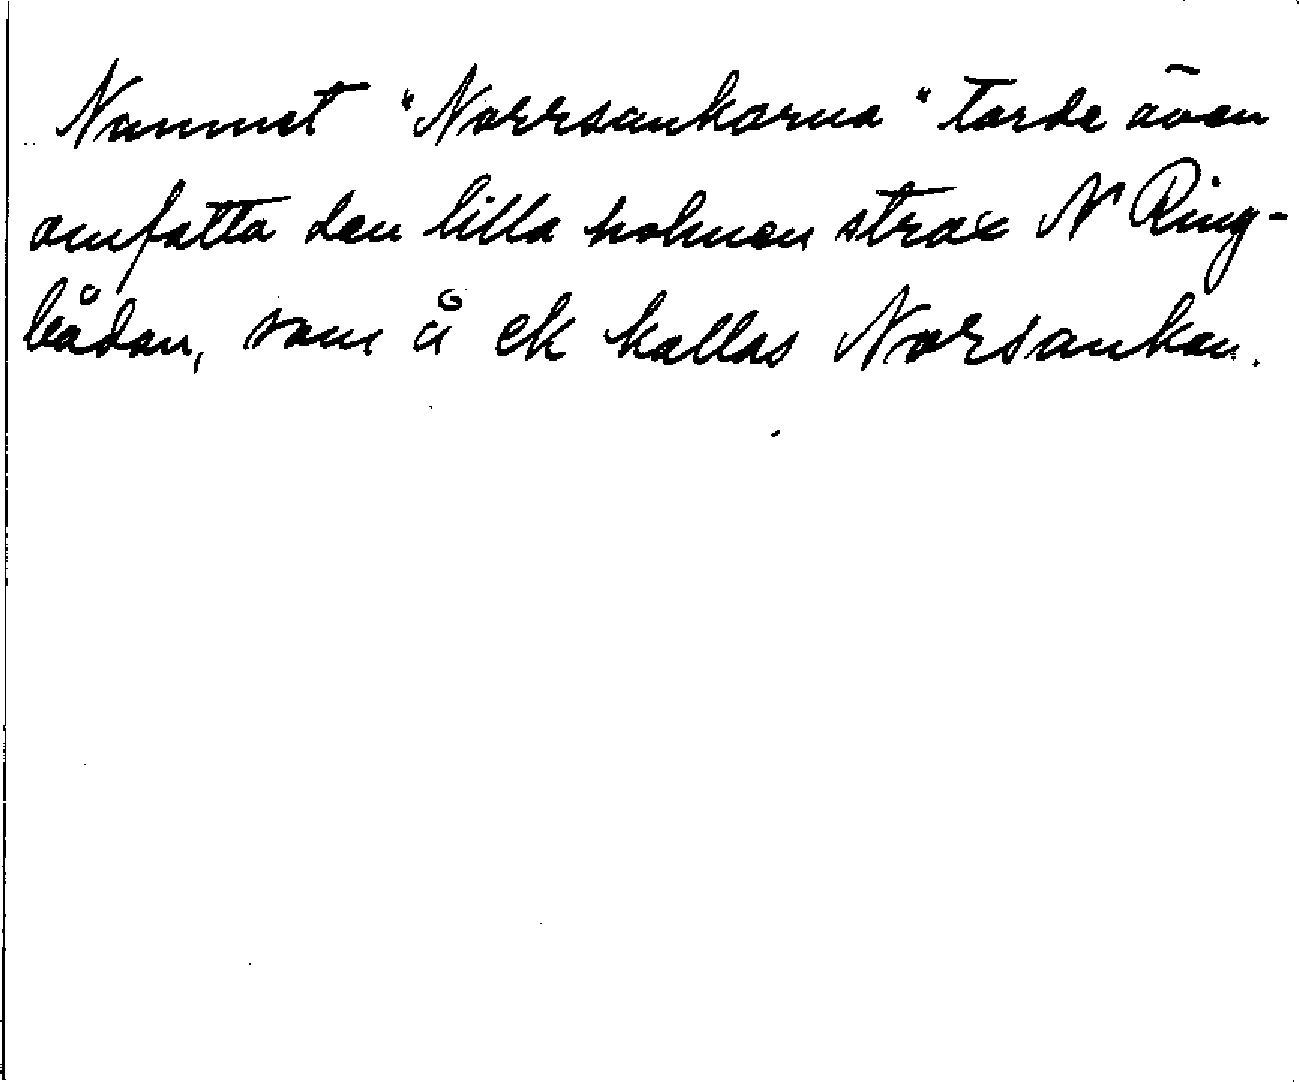 Namnet "Norrsankorna" torde även
omfatta den lilla holmen strax N Ring-
bådan, som å ek kallas Norsankan.